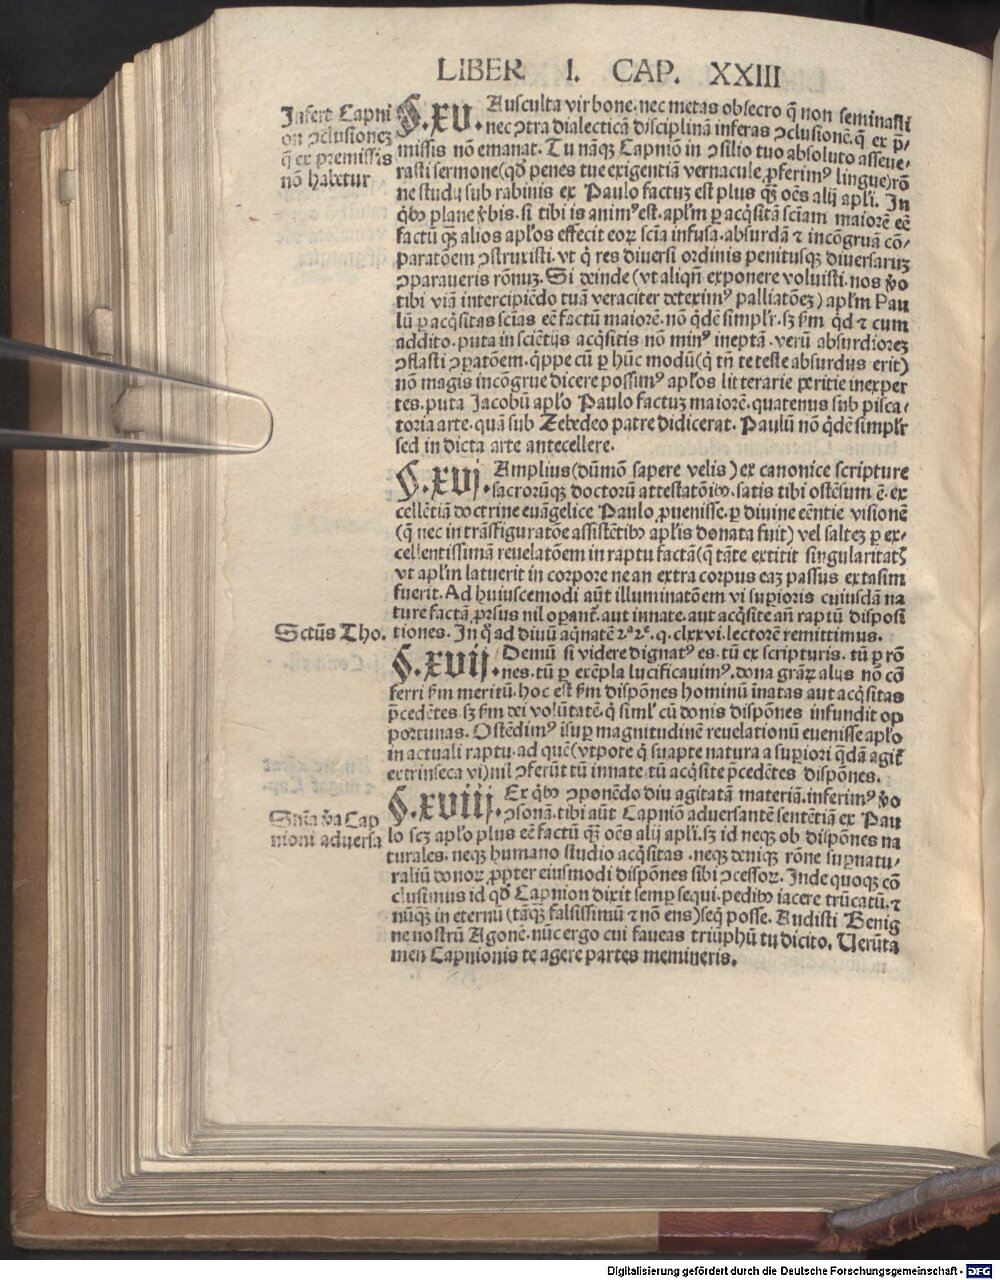 LIBER I. CAP. XXIII
Infert Capni
on ↄclusionez
q̄ ex premissis
nō habetur
§.xv. Ausculta vir bone. nec metas obsecro q̄ non seminasti
nec ↄtra dialecticā disciplinā inferas ↄclusionē. q̄ ex p̄-
missis nō emanat. Tu nāqꝫ Capniō in ↄsilio tuo absoluto asseue-
rasti sermone (qđ penes tue exigentiā vernacule ꝓferimꝰ lingue) rō
ne studij sub rabinis ex Paulo factuꝫ est plus qꝫ oēs alij apl̄i. In
qbꝰ plane v̄bis. si tibi is animꝰ est. apl̄m ꝑ acq̄sitā sciam maiorē eē
factū qꝫ alios apl̄os effecit eoꝝ scia infusa. absurdā ⁊ incōgruā cō-
paratōem ↄstruxisti. vt q̄ res diuersi ordinis penitusqꝫ diuersaruꝫ
ↄparaueris rōnuꝫ. Si deinde (vt aliqn̄ exponere voluisti. nos v̄o
tibi viā intercipiēdo tuā veraciter deteximꝰ palliatōeꝫ) apl̄m Pau
lū ꝑ acq̄sitas sciās eē factū maiorē. nō q̄dē simpl̄r. sꝫ ẜm q̄d ⁊ cum
addito. puta in sciētijs acq̄sitis nō minꝰ ineptā. verū absurdioreꝫ
ↄflasti ↄꝑatōem. q̄ppe cū ꝑ hūc modū (q̄ tn̄ te teste absurdus erit)
nō magis incōgrue dicere possimꝰ apl̄os litterarie peritie inexper
tes. puta Jacobū apl̄o Paulo factuꝫ maiorē. quatenus sub pisca-
toria arte. quā sub Zebedeo patre didicerat. Paulū nō q̄dē simpl̄r
sed in dicta arte antecellere.
§.xvj. Amplius (dūmō sapere velis) ex canonice scripture
sacrorūqꝫ doctorū attestatōibꝰ. satis tibi ostēsum ē. ex
cellētiā doctrine euāgelice Paulo ꝓuenisse. ꝑ diuine eēntie visionē
(q̄ nec in trāsfiguratōe assistētibꝰ apl̄is donata fuit) vel salteꝫ ꝑ ex-
cellentissimā reuelatōem in raptu factā (q̄ tāte extitit singularitatꝭ
vt apl̄m latuerit in corpore ne an extra corpus eaꝫ passus extasim
fuerit. Ad huiuscemodi aūt illuminatōem vi suꝑioris cuiusdā na
ture factā ꝓrsus nil opant̄. aut innate. aut acq̄site añ raptū disposi
Sctūs Tho.
tiones. In q̄ ad diuū aq̄natē 2ª2ᵉ. q. clxxvi. lectorē remittimus.
§.xvij. Demū si videre dignatꝰ es. tū ex scripturis. tū ꝑ rō
nes. tū ꝑ exēpla lucificauimꝰ. dona grāꝝ alijs nō cō
ferri ẜm meritū. hoc est ẜm dispōnes hominū īnatas aut acq̄sitas
p̄cedētes. sꝫ ẜm dei volūtatē. q̄ siml̄ cū donis dispōnes infundit op
portunas. Ostēdimꝰ īsuꝑ magnitudinē reuelationū euenisse apl̄o
in actuali raptu. ad quē (vtpote q̄ suapte natura a suꝑiori q̄dā agit̄
extrinseca vi) nil ↄferūt tū innate. tū acq̄site p̄cedētes dispōnes.
Snīa v̄a Cap
nioni aduersa
§.xviij. Ex qbꝰ ↄponēdo diu agitatā materiā. inferimꝰ v̄o
ↄsonā. tibi aūt Capniō aduersantē sentētiā ex Pau
lo scꝫ apl̄o plus eē factū qꝫ oēs alij apl̄i. sꝫ id neqꝫ ob dispōnes na
turales. neqꝫ humano studio acq̄sitas. neqꝫ deniqꝫ rōne suꝑnatu-
raliū donoꝝ ꝓpter eiusmodi dispōnes sibi ↄcessoꝝ. Inde quoqꝫ cō
clusimus id qđ Capnion dixit semꝑ sequi. pedibꝰ iacere trūcatū. ⁊
nūqꝫ in eternū (tāqꝫ falsissimū ⁊ nō ens) seq̄ posse. Audisti Benig
ne nostrū Agonē. nūc ergo cui faueas triūphū tu dicito. Verūta
men Capnionis te agere partes memineris.
Digitalisierung gefördert durch die Deutsche Forschungsgemeinschaft - DFG